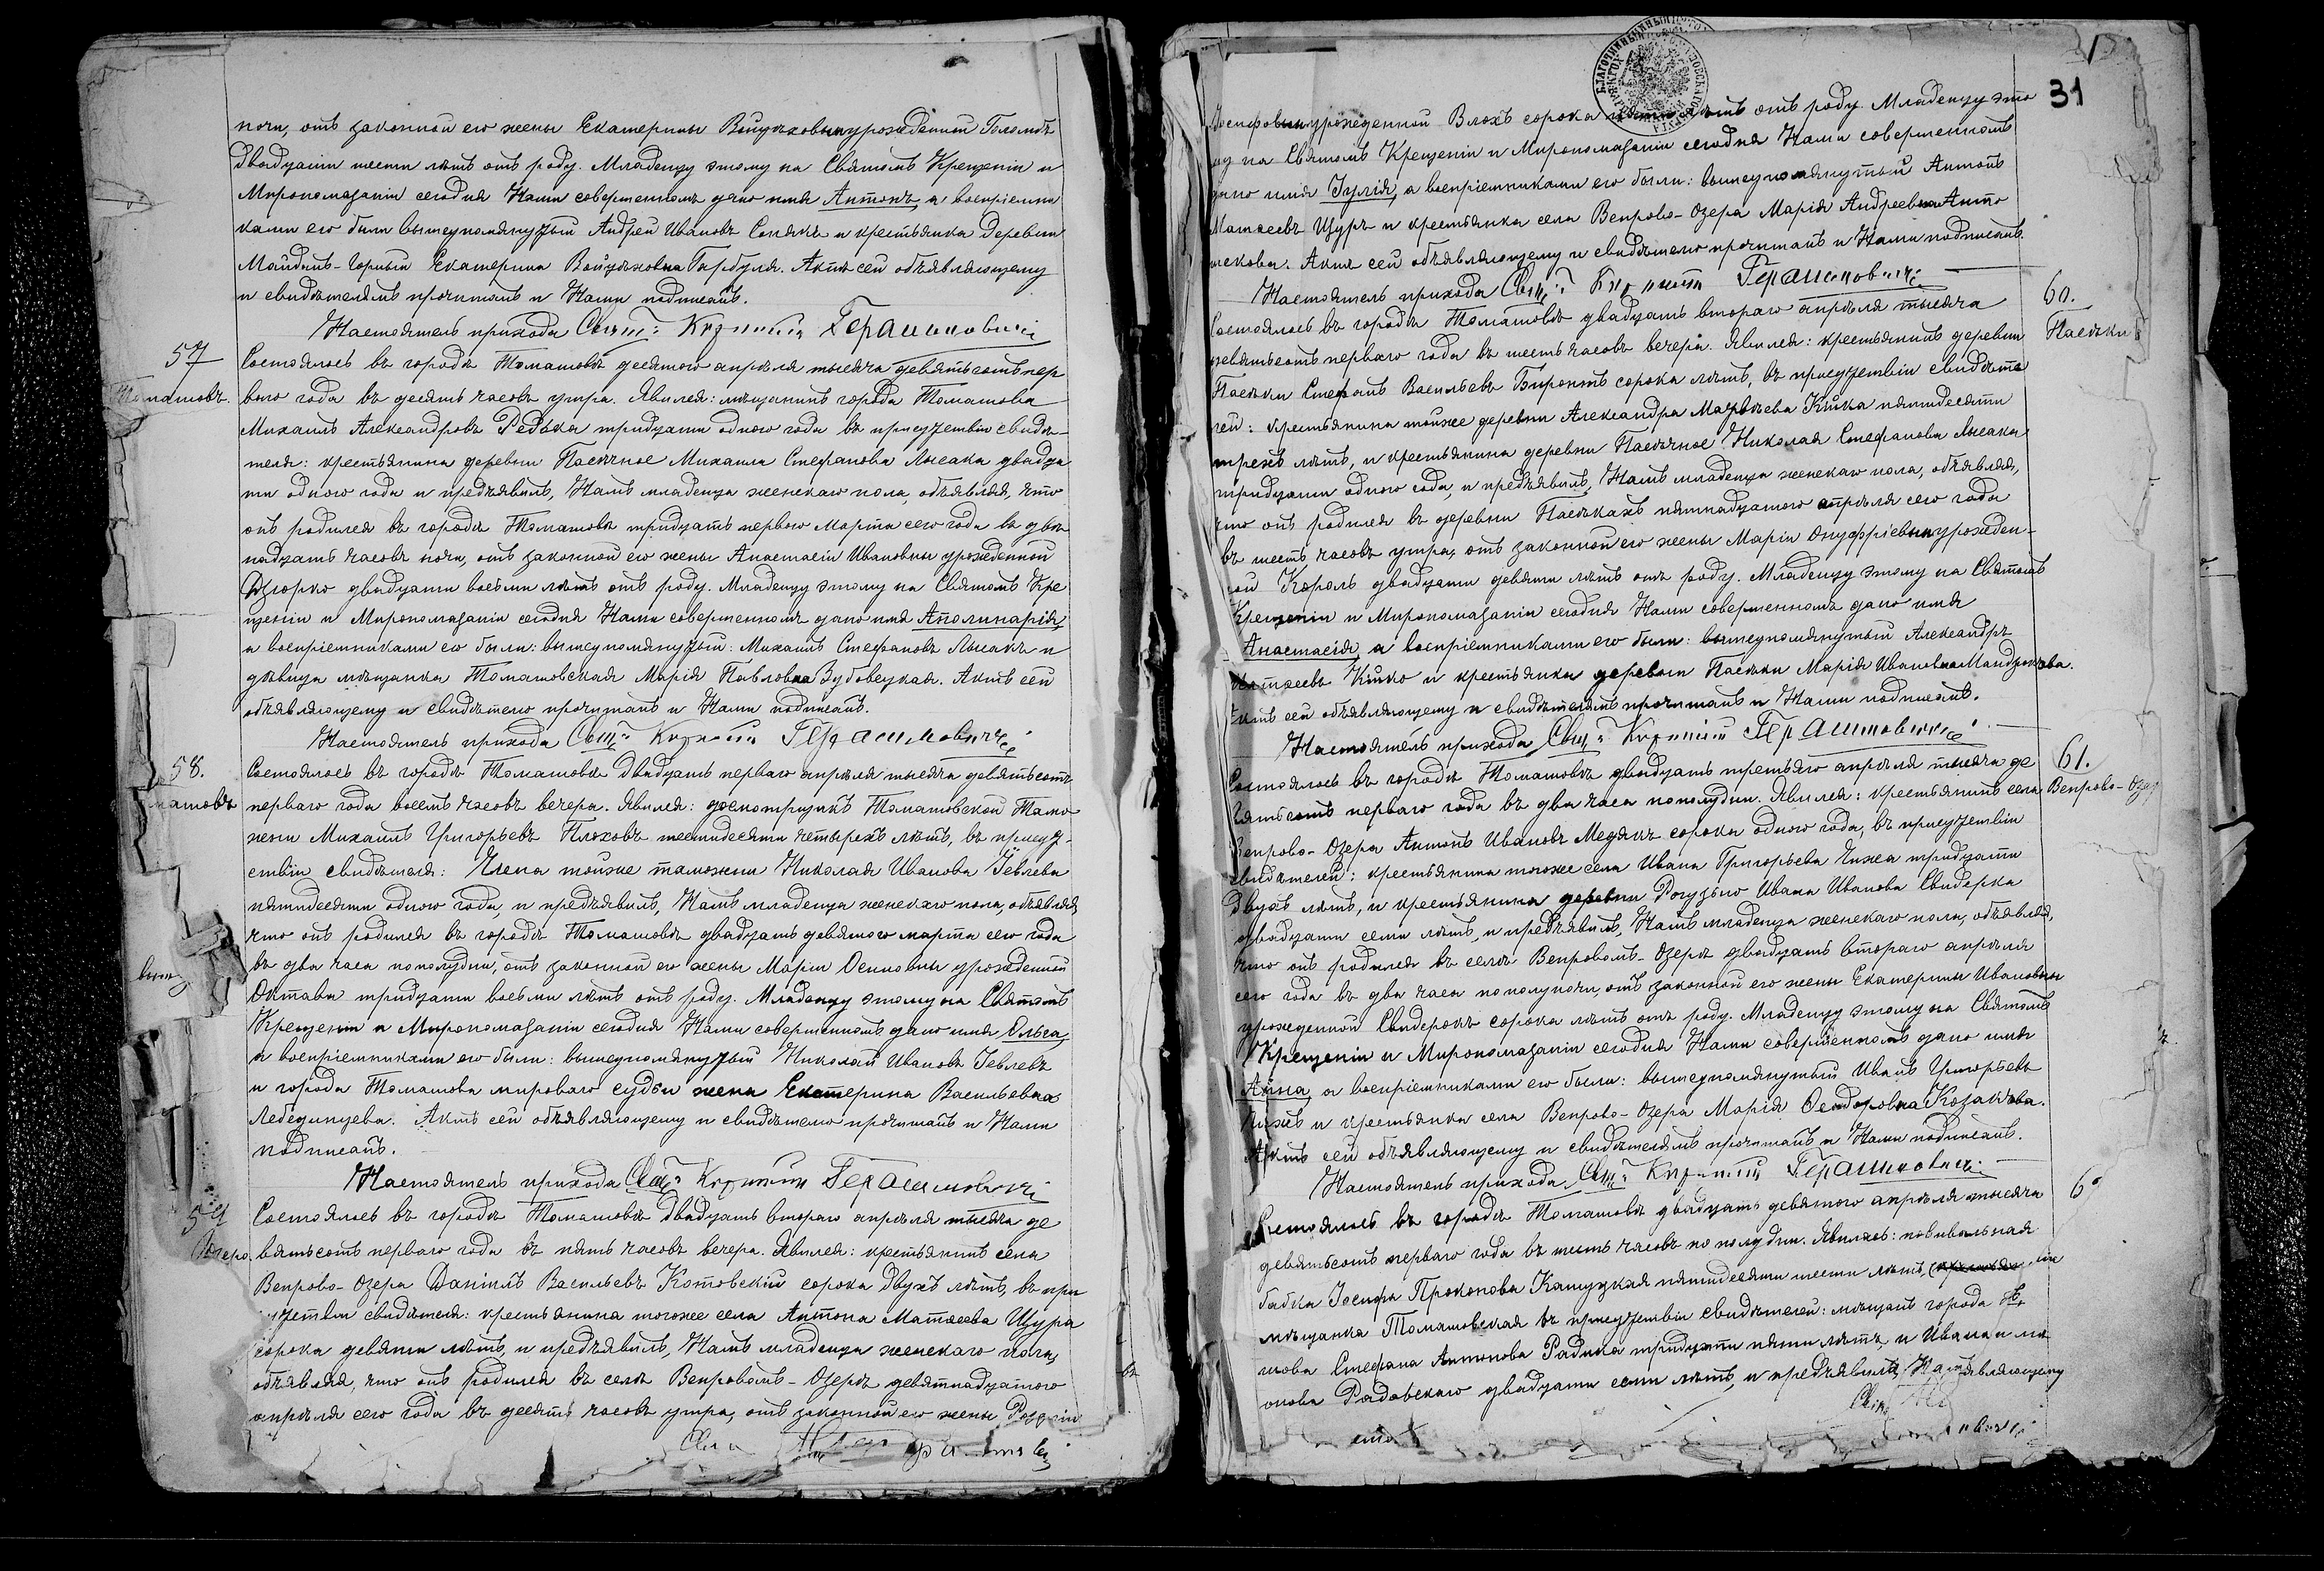 ночи, отъ законной его жены Екатерины Войцѣховны урожденной Голомбъ
двадцати шести лѣтъ отъ роду. Младенцу этому на Святомъ Крещеніи и
Миропомазаніи сегодня Нами совершенномъ дано имя Антонъ, а воспріемни
ками его были вышеупомянутый Андрей Ивановъ и крестьянка деревни
Майданъ-Горный Екатерина Войцѣховна Гарбуля. Актъ сей объявляющему
и свидѣтелямъ прочитанъ и Нами подписанъ.
Настоятель прихода Свящ: Герашимовичъ
57
Томашовъ.
Состоялось въ городѣ Томашовѣ десятого апрѣля тысяча девятьсотъ пер
вого года въ десять часовъ утра. Явился: мѣщанинъ города Томашова
Михаилъ Александровъ Редька тридцати одного года въ присутствіи свидѣ-
теля: крестьянина деревни Пасѣчное Михаила Стефанова Лысака двадца
ти одного года и предъявилъ, Намъ младенца женскаго пола, объявляя, что
онъ родился въ городѣ Томашовѣ тридцать первого Марта сего года въ двѣ
надцать часовъ ночи, отъ законной его жены Анастасіи Ивановны урожденной
Дзюрко двадцати восьми лѣтъ отъ роду. Младенцу этому на Святомъ Кре
щеніи и Миропомазаніи сегодня Нами совершенномъ дано имя Аполинарія,
а воспріемниками его были: вышеупомянутый: Михаилъ Стефановъ Лысакъ и
дѣвица мѣщанка Томашовская Марія Павловна Зубовецкая. Актъ сей
объявляющему и свидѣтелю прочитанъ и Нами подписанъ.
Настоятель прихода Свящ: Герашимовичъ
58.
матовъ
Состоялось въ городѣ Томашовѣ двадцать перваго апрѣля тысяча девятьсотъ
перваго года восемь часовъ вечера. Явился: досмотрщикъ Томашовской Тамо
жени Михаилъ Григорьевъ Плоховъ шестидесяти четырехъ лѣтъ, въ присут-
ствіи свидѣтеля: Члена тойже таможни Николая Иванова Іевлева
пятидесяти одного года, и предъявилъ, Намъ младенца женскаго пола, объявляя,
что онъ родился въ городѣ Томашовѣ двадцать девятого марта сего года
въ два часа пополудни, отъ законной его жены Маріи Осиповны урожденной
Октава тридцати восьми лѣтъ отъ роду. Младенцу этому на Святомъ
Крещеніи и Миропомазаніи сегодня Нами совершенномъ дано имя Ольга,
а воспріемниками его были: вышеупомянутый Николай Ивановъ Іевлевъ
и города Томашова мироваго судьи жена Екатерина Васильевна
Лебединцева. Актъ сей объявляющему и свидѣтелю прочитанъ и Нами
подписанъ.
Настоятель прихода Свящ: Герашимовичъ
59
Озеро.
Состоялось въ городѣ Томашовѣ двадцать втораго апрѣля тысяча де
вятьсотъ перваго года въ пять часовъ вечера. Явился: крестьянинъ села
Вепрово-Озера Даніилъ Васильевъ Котовскій сорока двухъ лѣтъ, въ при
сутствіи свидѣтеля: крестьянина тогоже села Антона Матѳеева Щура
сорока девяти лѣтъ, и предъявилъ, Намъ младенца женскаго пола,
объявляя, что онъ родился въ селѣ Вепровомъ-Озерѣ девятнадцатого
апрѣля сего года въ десять часовъ утра, отъ законной его жены
31
Іосифовны урожденной Влохъ сорока лѣтъ отъ роду. Младенцу это
му на Святомъ Крещеніи и Миропомазаніи сегодня Нами совершенномъ
дано имя Іулія, а воспріемниками его были: вышеупомянутый Антонъ
Матѳеевъ Щуръ и крестьянка села Вепрово-Озера Марія Андреевна Анто
шекова. Актъ сей объявляющему и свидѣтелю прочитанъ и Нами подписанъ.
Настоятель прихода Свящ: Герашимовичъ
60.
Пасѣки
Состоялось въ городѣ Томашовѣ двадцать втораго апрѣля тысяча
девятьсотъ перваго года въ шесть часовъ вечера. Явился: крестьянинъ деревни
Пасѣки Стефанъ Васильевъ Биронтъ сорока лѣтъ, въ присутствіи свидѣте
лей: крестьянина тойже деревни Александра Матвѣева Кійка пятидесяти
трехъ лѣтъ, и крестьянина деревни Пасѣчное Николая Стефанова Лысака
тридцати одного года, и предъявилъ, Намъ младенца женскаго пола, объявляя,
что онъ родился въ деревни Пасѣкахъ пятнадцатого апрѣля сего года
въ шесть часовъ утра, отъ законной его жены Маріи Онуфріевны урожден-
ной Король двадцати девяти лѣтъ отъ роду. Младенцу этому на Святомъ
Крещеніи и Миропомазаніи сегодня Нами совершенномъ дано имя
Анастасія, а воспріемниками его были: вышеупомянутый Александръ
Матѳеевъ Кійко и крестьянка деревни Пасѣки Марія Ивановна Мандзюкова.
Актъ сей объявляющему и свидѣтелямъ прочитанъ и Нами подписанъ.
Настоятель прихода Свящ: Герашимовичъ
61.
Вепрово-Озер
Состоялось въ городѣ Томашовѣ двадцать третьяго апрѣля тысяча де
вятьсотъ перваго года въ два часа пополудни. Явился: крестьянинъ села
Вепрово-Озера Антонъ Ивановъ Медякъ сорока одного года, въ присутствіи
свидѣтелей: крестьянина тогоже села Ивана Григорьева Чижа тридцати
двухъ лѣтъ, и крестьянина деревни Рогузьно Ивана Иванова Свидерка
двадцати семи лѣтъ, и предъявилъ, Намъ младенца женскаго пола, объявляя,
что онъ родился въ селѣ Вепровомъ-Озерѣ двадцать втораго апрѣля
сего года въ два часа пополуночи, отъ законной его жены Екатерины Ивановны
урожденной Свидерокъ сорока лѣтъ отъ роду. Младенцу этому на Святомъ
Крещеніи и Миропомазаніи сегодня Нами совершенномъ дано имя
Анна, а воспріемниками его были: вышеупомянутый Иванъ Григорьевъ
Чижъ и крестьянка села Вепрово-Озера Марія Ѳеодоровна Козакова.
Актъ сей объявляющему и свидѣтелямъ прочитанъ и Нами подписанъ.
Настоятель прихода Свящ: Герашимовичъ
6
Состоялось въ городѣ Томашовѣ двадцать девятого апрѣля тысяча
девятьсотъ перваго года въ шесть часовъ по полудни. Явилась: повивальная
бабка Іосифа Прокопова Кашуцкая пятидесяти шести лѣтъ,
мѣщанка Томашовская въ присутствіи свидѣтелей: мѣщанъ города То
шова Стефана Антонова Радика тридцати пяти лѣтъ, и Ивана
онова Радовскаго двадцати семи лѣтъ, и предъявила,